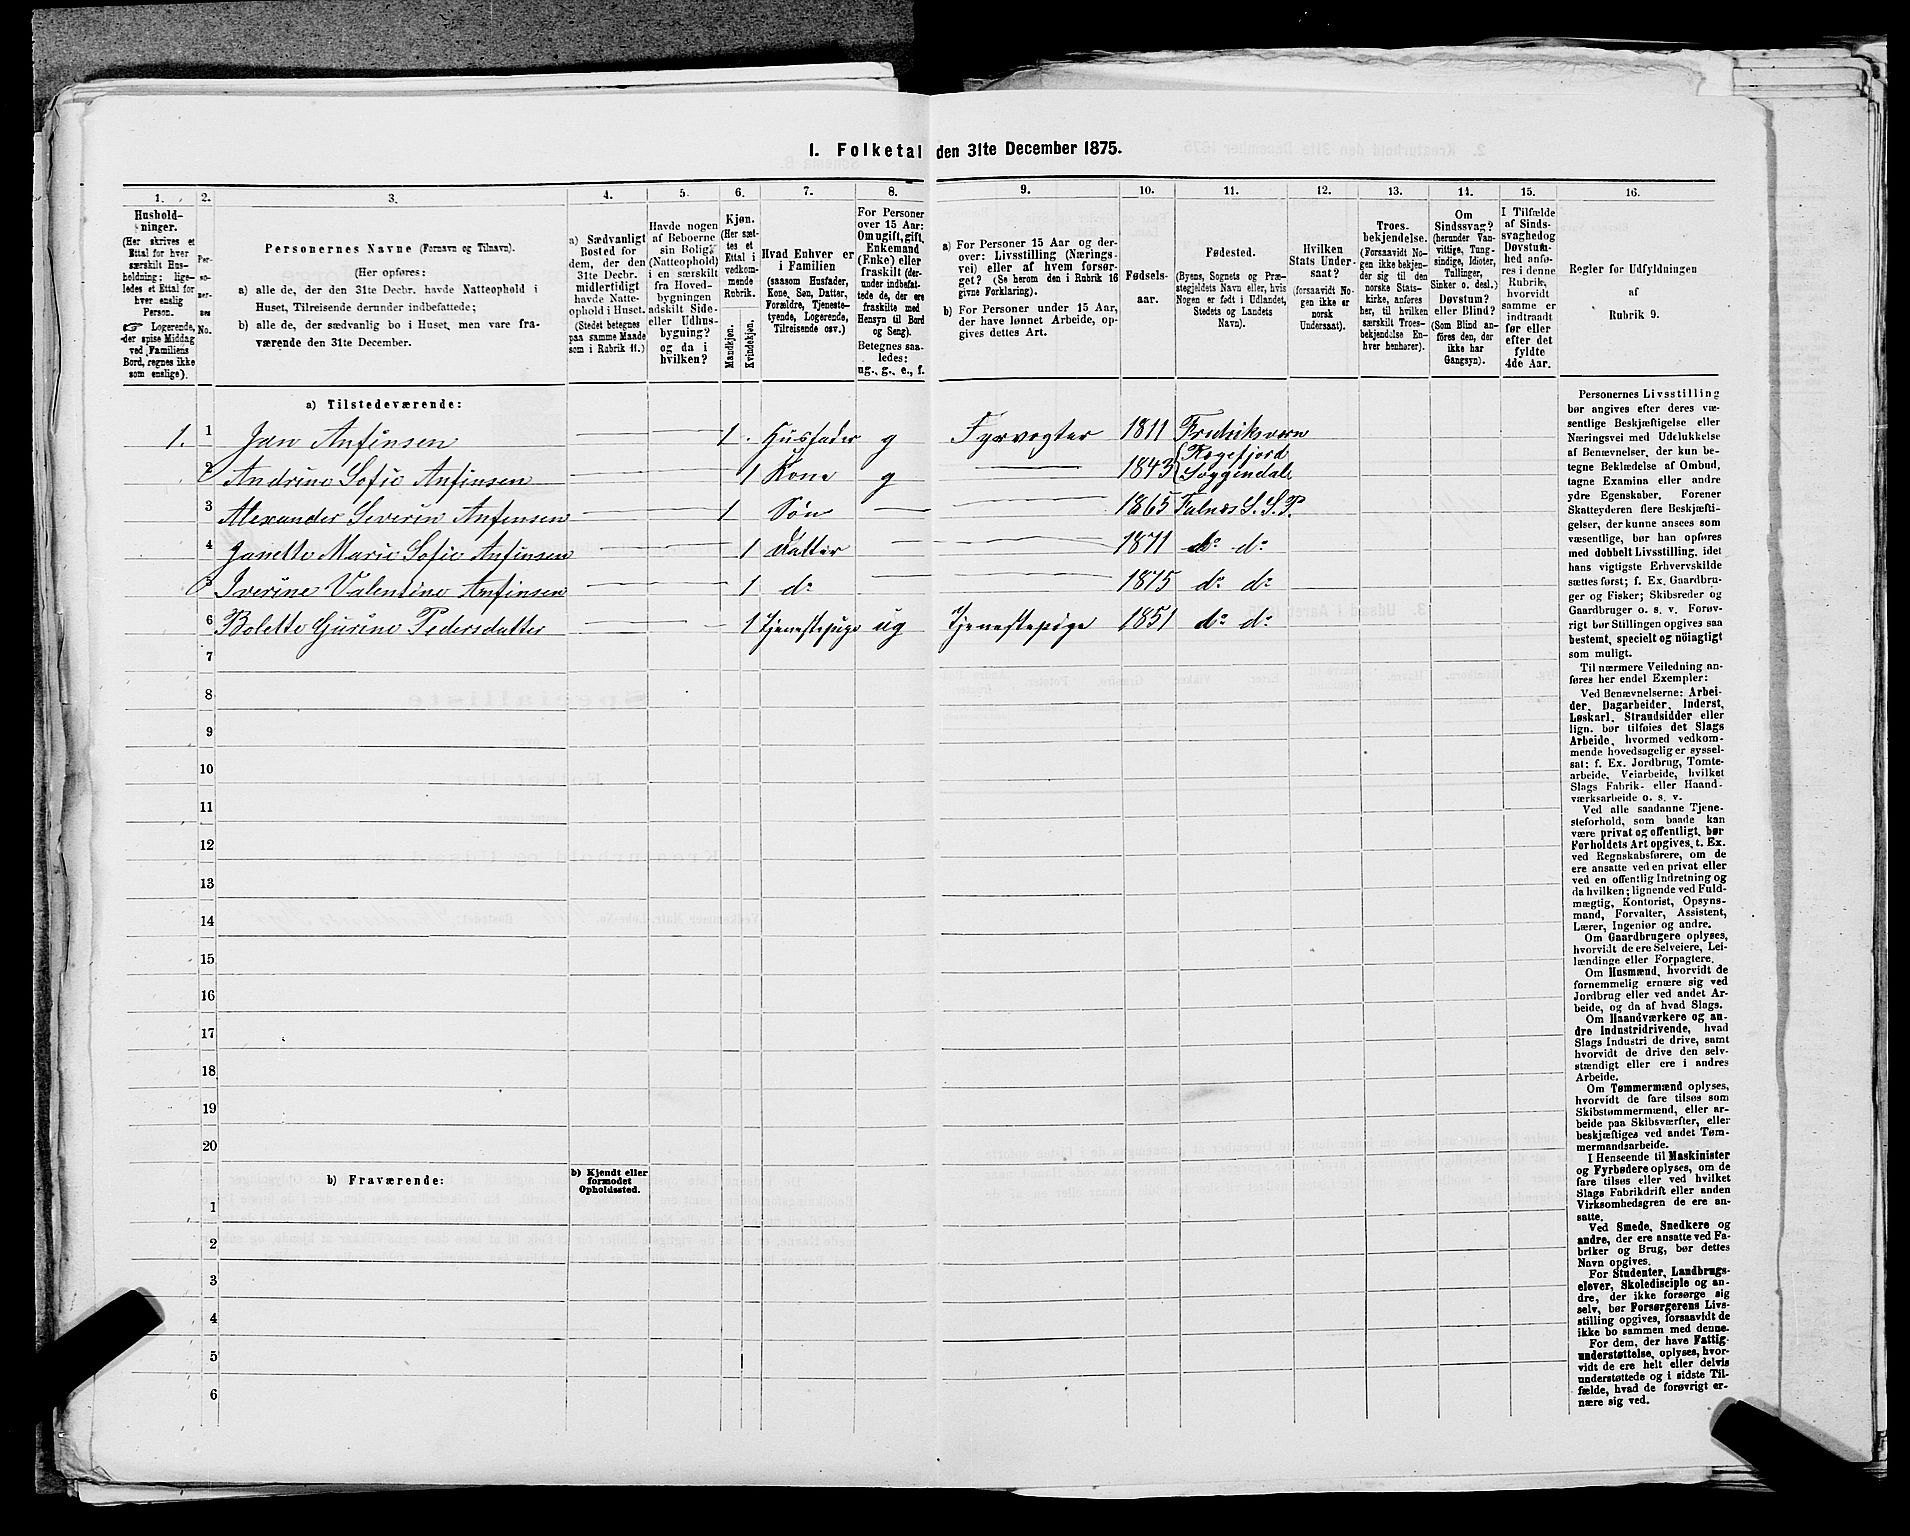 I. Folketal den 31te December 1875.
1. 2. 3. 4. 5. 6. 7. 8. 9. 10. 11. 12. 13. 14. 15. 16.
Hushold-
ninger.
(Her skrives et
Ettal for hver
særskilt Hus-
holdning; lige-
ledes et Ettal for
hver enslig
Person.
☞ Logerende,
der spise Middag
ved Familiens
Bord, regnes ikke
som enslige).
Per-
so-
ner-
nes
No.
Personernes Navne (Fornavn og Tilnavn).
(Her opføres:
a) alle de, der den 31te Decbr. havde Natteophold i
Huset, Tilreisende derunder indbefattede;
b) alle de, der sædvanlig bo i Huset, men vare fra-
værende den 31te December.
a) Sædvanligt
Bosted for
dem, der den
31te Decbr.
midlertidigt
havde Natte-
ophold i Huset.
(Stedet betegnes
paa samme Maade
som i Rubrik 11.)
Havde nogen
af Beboerne
sin Bolig
(Natteophold)
i en særskilt
fra Hoved-
bygningen
adskilt Side-
eller Udhus-
bygning?
og da i
hvilken?
Kjøn.
(Her sæt-
tes et
Ettal i
vedkom-
mende
Rubrik.
Mandkjøn.
Kvindekjøn.
Hvad Enhver er
i Familien
(saasom Husfader,
Kone, Søn, Datter,
Forældre, Tjeneste-
tyende, Logerende,
Tilreisende osv.)
For Personer
over 15 Aar:
Om ugift, gift,
Enkemand
(Enke) eller
fraskilt (der-
under indbefat-
tede de, der ere
fraskilte med
Hensyn til Bord
og Seng).
Betegnes saa-
ledes:
ug., g., e., f.
a) For Personer 15 Aar og der-
over: Livsstilling (Nærings-
vei) eller af hvem forsør-
get? (Se herom den i Rubrik 16
givne Forklaring).
b) For Personer under 15 Aar,
der have lønnet Arbeide, op-
gives dettes Art.
Fødsels-
aar.
Fødested.
(Byens, Sognets og Præ-
stegjeldets Navn eller, hvis
Nogen er født i Udlandet,
Stedets og Landets
Navn).
Hvilken
Stats Under-
saat?
(forsaavidt No-
gen ikke er
norsk
Undersaat).
Troes-
bekjendelse.
(Forsaavidt No-
gen ikke bekjen-
der sig til den
norske Stats-
kirke, anføres
her, til hvilken
særskilt Troes-
bekjendelse En-
hver henhører).
Om
Sindssvag?
(herunder Van-
vittige, Tung-
sindige, Idioter,
Tullinger,
Sinker o. desl.)
Døvstum?
eller Blind?
(Som Blind an-
føres den, der
ikke har
Gangsyn).
I Tilfælde
af Sinds-
svaghed og
Døvstum-
hed anfø-
res i denne
Rubrik,
hvorvidt
samme er
indtraadt
før eller
efter det
fyldte
4de Aar.
Regler for Udfyldningen
af
Rubrik 9.
a) Tilstedeværende:
1. 1 Jan Anfinsen 1 Husfader g Fyrvogter 1811 Fredriksværn
2 Andrine Sofie Anfinsen 1 Kone g 1843 Rægefjord Soggendal
3 Alexander Severin Anfinsen 1 Søn 1865 Falnæs S. S. P.
4 Janette Marie Sofie Anfinsen 1 Datter 1871 do do
5 Iverine Valentine Anfinsen 1 do 1875 do do
6 Bolette Gurine Pedersdatter 1 Tjenestepige ug Tjenestepige 1851 do do
7
8
9
10
11
12
13
14
15
16
17
18
19
20
b) Fraværende:
b) Kjendt eller
formodet
Opholdssted.
1
2
3
4
5
6
Personernes Livsstilling
bør angives efter deres væ-
sentlige Beskjæftigelse eller
Næringsvei med Udelukkelse
af Benævnelser, der kun be-
tegne Beklædelse af Ombud,
tagne Examina eller andre
ydre Egenskaber. Forener
Skatteyderen flere Beskjæfti-
gelser, der kunne ansees som
væsentlige, bør han opføres
med dobbelt Livsstilling, idet
hans vigtigste Erhvervskilde
sættes først; f. Ex. Gaardbru-
ger og Fisker; Skibsreder og
Gaardbruger o. s. v. Forøv-
rigt bør Stillingen opgives saa
bestemt, specielt og nöiagligt
som muligt.
Til nærmere Veiledning an-
føres her endel Exempler:
Ved Benævnelserne: Arbei-
der, Dagarbeider, Inderst,
Løskarl, Strandsidder eller
lign. bør tilføies det Slags
Arbeide, hvormed vedkom-
mende hovedsagelig er syssel-
sat: f. Ex. Jordbrug, Tomte-
arbeide, Veiarbeide, hvilket
Slags Fabrik- eller Haand-
værksarbeide o. s. v.
Ved alle saadanne Tjene-
steforhold, som baade kan
være privat og offentligt, bør
Forholdets Art opgives, t. Ex.
ved Regnskabsførere, om de
ere ansatte ved en privat eller
ved en offentlig Indretning og
da hvilken; lignende ved Fuld-
mægtig, Kontorist, Opsyns-
mand, Forvalter, Assistent,
Lærer, Ingeniør og andre.
Om Gaardbrugere oplyses,
hvorvidt de ere Selveiere, Lei-
lændinge eller Forpagtere.
Om Husmænd, hvorvidt de
fornemmelig ernære sig ved
Jordbrug eller ved andet Ar-
beide, og da af hvad Slags.
Om Haandværkere og an-
dre Industridrivende, hvad
Slags Industri de drive, samt
hvorvidt de drive den selv-
stændigt eller ere i andres
Arbeide.
Om Tømmermænd oplyses,
hvorvidt de fare tilsøs som
Skibstømmermænd, eller ar-
beide paa Skibsværfter, eller
beskjæftiges ved andet Tøm-
mermandsarbeide.
I Henseende til Maskinister
og Fyrbødere oplyses, om de
fare tilsøs eller ved hvilket
Slags Fabrikdrift eller anden
Virksomhedsgren de ere an-
satte.
Ved Smede, Snedkere og
andre, der ere ansatte ved Fa-
briker og Brug, bør dettes
Navn opgives.
For Studenter, Landbrugs-
elever, Skoledisciple og an-
dre, der ikke forsørge sig
selv, bør Forsørgerens Livs-
stilling opgives, forsaavidt de
ikke bo sammen med denne.
For dem, der have Fattig-
understøttelse, oplyses, hvor-
vidt de ere helt eller delvis
understøttede og i sidste Til-
fælde, hvad de forøvrigt er-
nære sig ved.